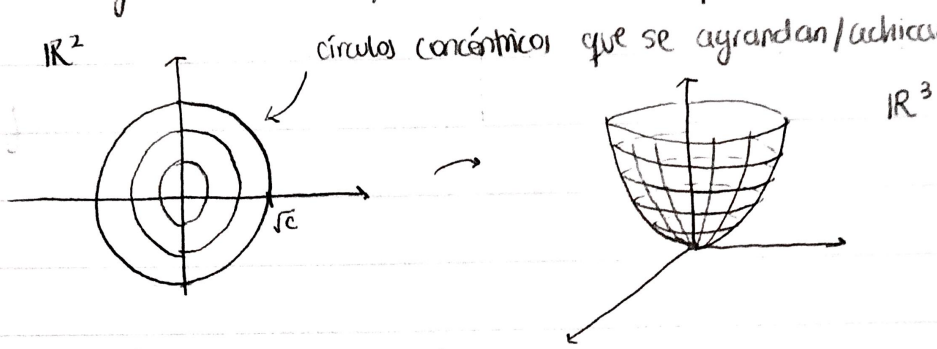 ℝ²
círculos concéntricos que se agrandan/achica
ℝ³
√c